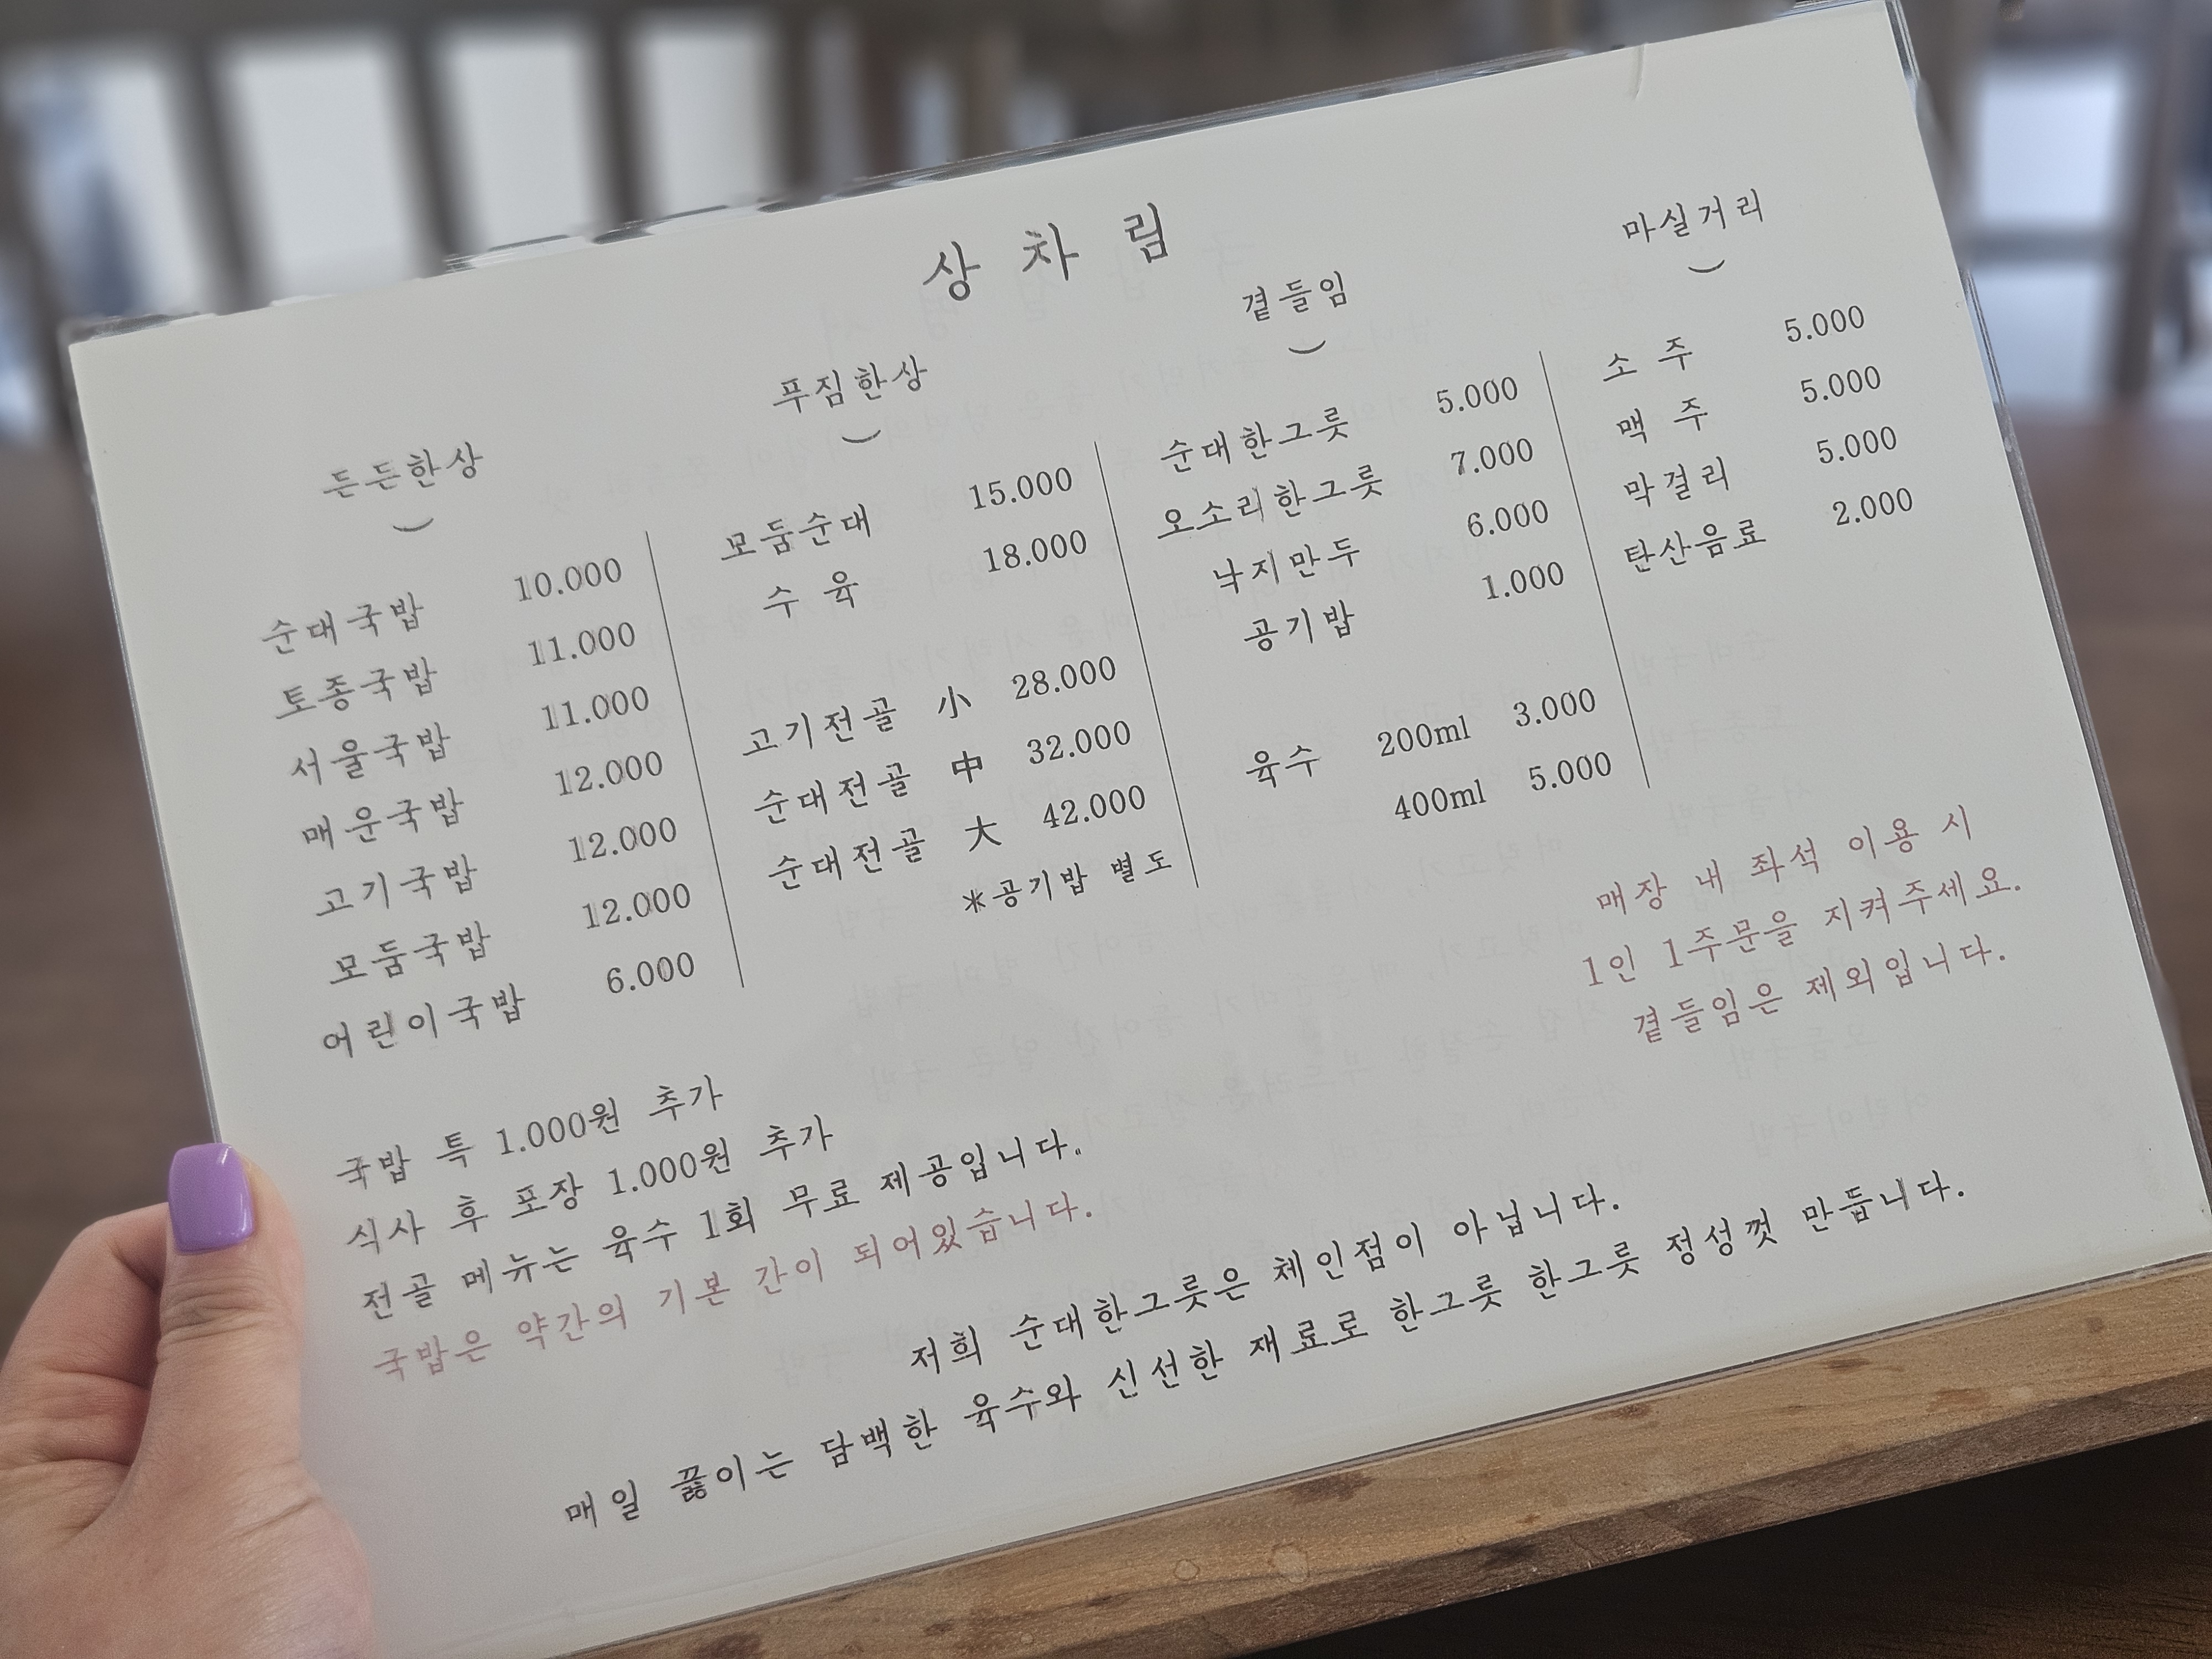 상 차 림
든든한상
순대국밥 10.000
토종국밥 11.000
서울국밥 11.000
매운국밥 12.000
고기국밥 12.000
모둠국밥 12.000
어린이국밥 6.000
푸짐한상
모둠순대 15.000
수 육 18.000
고기전골 小 28.000
순대전골 中 32.000
순대전골 大 42.000
*공기밥 별도
곁들임
순대한그릇 5.000
오소리한그릇 7.000
낙지만두 6.000
공기밥 1.000
육수 200ml 3.000
400ml 5.000
마실거리
소 주 5.000
맥 주 5.000
막걸리 5.000
탄산음료 2.000
매장 내 좌석 이용 시
1인 1주문을 지켜주세요.
곁들임은 제외입니다.
국밥 특 1.000원 추가
식사 후 포장 1.000원 추가
전골 메뉴는 육수 1회 무료 제공입니다.
국밥은 약간의 기본 간이 되어있습니다.
저희 순대한그릇은 체인점이 아닙니다.
매일 끓이는 담백한 육수와 신선한 재료로 한그릇 한그릇 정성껏 만듭니다.